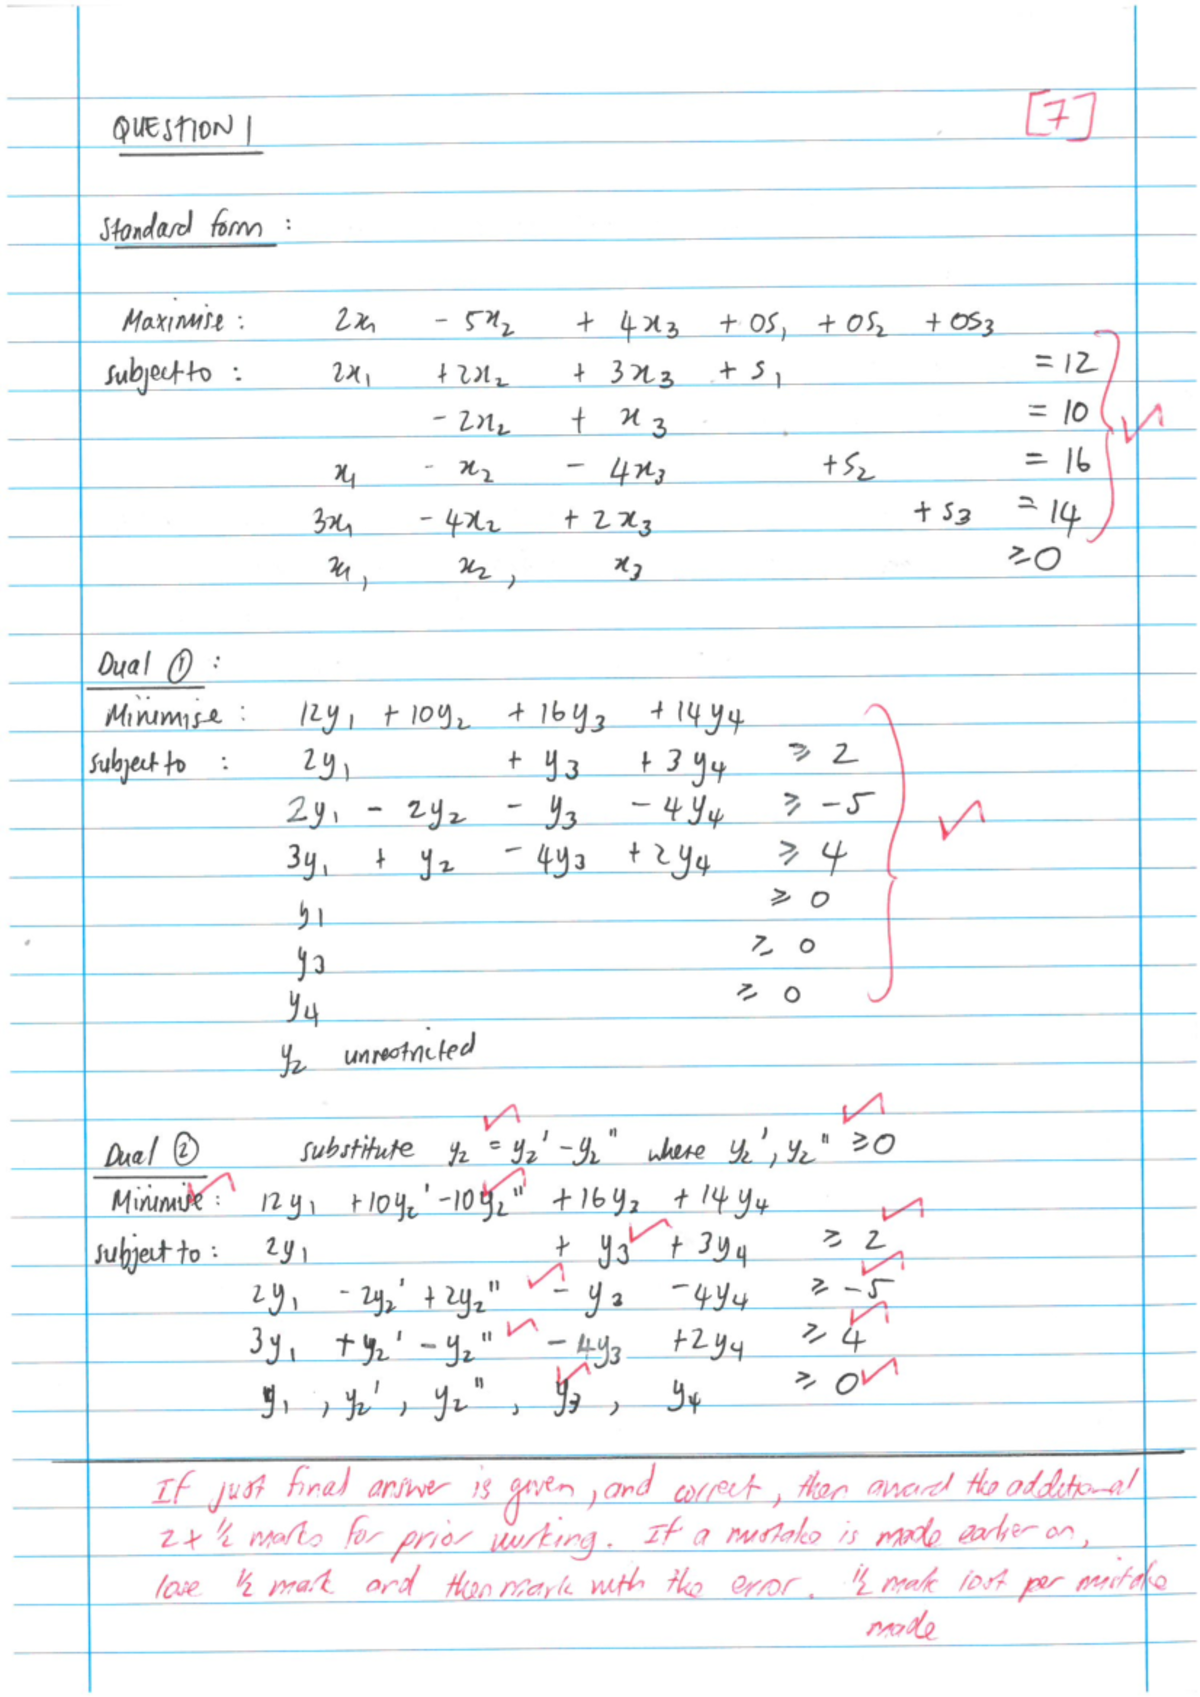 [7]
QUESTION 1
Standard form :
Maximise : 2x₁ - 5x₂ + 4x₃ + 0S₁ + 0S₂ + 0S₃
subject to : 2x₁ + 2x₂ + 3x₃ + S₁ = 12
- 2x₂ + x₃ = 10
x₁ - x₂ - 4x₃ + S₂ = 16
3x₁ - 4x₂ + 2x₃ + S₃ = 14
x₁, x₂, x₃ ≥ 0
Dual ① :
Minimise : 12y₁ + 10y₂ + 16y₃ + 14y₄
subject to : 2y₁ + y₃ + 3y₄ ≥ 2
2y₁ - 2y₂ - y₃ - 4y₄ ≥ -5
3y₁ + y₂ - 4y₃ + 2y₄ ≥ 4
y₁ ≥ 0
y₃ ≥ 0
y₄ ≥ 0
y₂ unrestricted
Dual ② substitute y₂ = y₂' - y₂" where y₂', y₂" ≥ 0
Minimise : 12y₁ + 10y₂' - 10y₂" + 16y₃ + 14y₄
subject to : 2y₁ + y₃ + 3y₄ ≥ 2
2y₁ - 2y₂' + 2y₂" - y₃ - 4y₄ ≥ -5
3y₁ + y₂' - y₂" - 4y₃ + 2y₄ ≥ 4
y₁, y₂', y₂", y₃, y₄ ≥ 0
If just final answer is given, and correct, then award the additional
2 x ½ marks for prior working. If a mistake is made earlier on,
lose ½ mark and then mark with the error. ½ mark lost per mistake
made